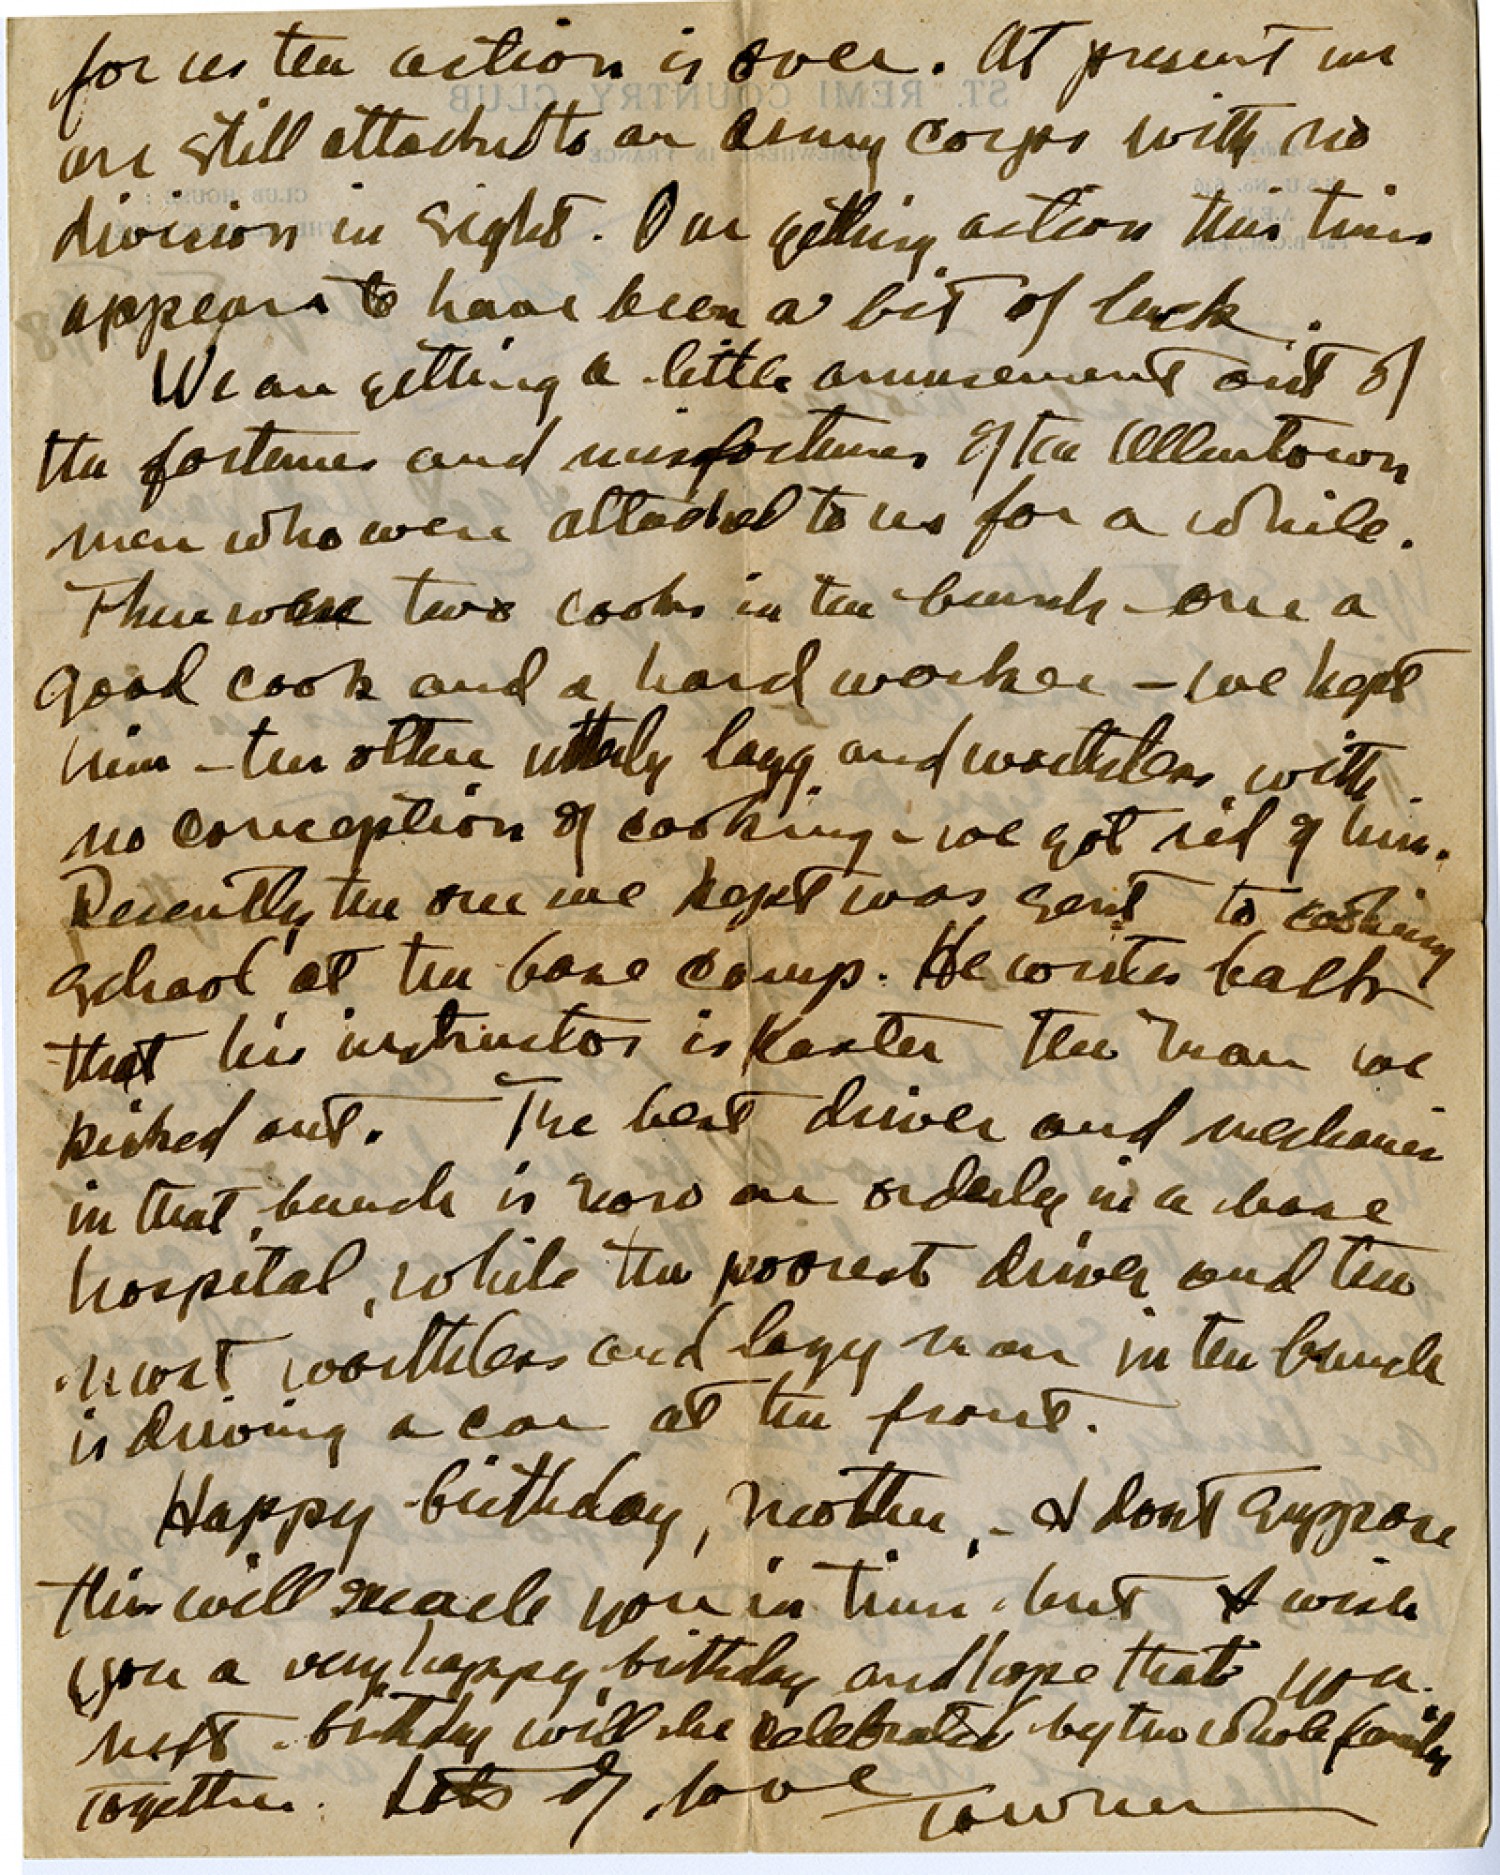 for us the action is over. At present we
are still attached to an Army corps with no
division in sight. Our getting action this time
appears to have been a bit of luck.
We are getting a little amusement out of
the fortunes and misfortunes of the Allentown
men who were attached to us for a while.
There were two cooks in the bunch - one a
good cook and a hard worker - we kept
him - the other utterly lazy and worthless with
no conception of cooking - we got rid of him.
Recently the one we kept was sent to cooking
school at the base camp. He writes back
that his instructor is Kaster the man we
kicked out. The best driver and mechanic
in that bunch is now an orderly in a base
hospital, while the poorest driver and the
most worthless and lazy man in the bunch
is driving a car at the front.
Happy birthday, mother, - I don't suppose
this will reach you in time but I wish
you a very happy birthday and hope that your
next birthday will be celebrated by the whole family
together. Lots of love Towner
ST. REMI COUNTRY CLUB
SOMEWHERE IN FRANCE
CLUB HOUSE :